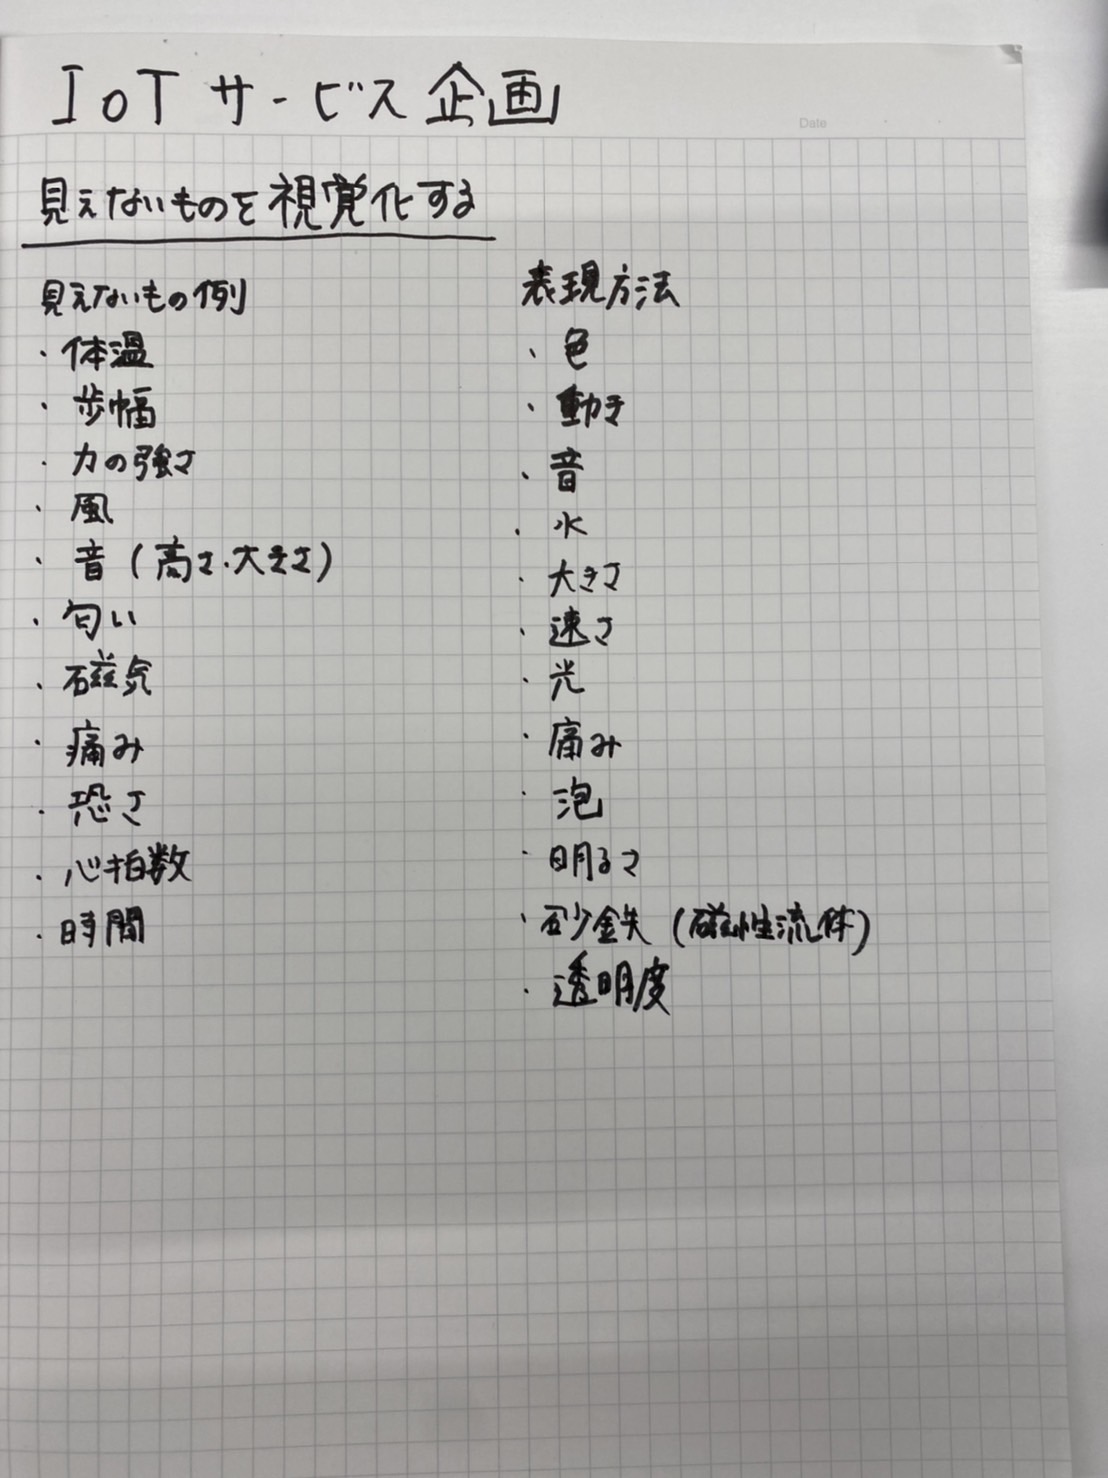 IoTサービス企画
Date
見えないものを視覚化する
見えないもの例
・体温
・歩幅
・力の強さ
・風
・音(高さ・大きさ)
・匂い
・磁気
・痛み
・恐さ
・心拍数
・時間
表現方法
・色
・動き
・音
・水
・大きさ
・速さ
・光
・痛み
・泡
・明るさ
・砂鉄(磁性流体)
・透明度